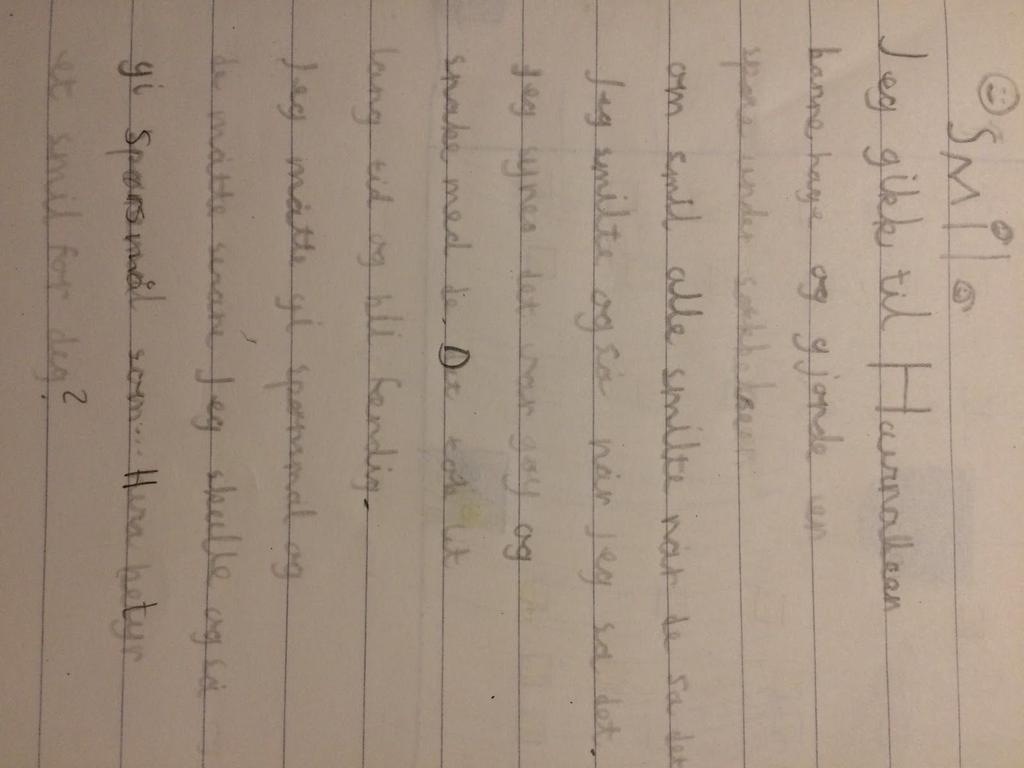 SMil
Jeg gikk til Hurralleen
barnehage og gjorde en
spøre under
om smil alle smilte når de sa det
Jeg smilte og så når jeg sa det.
Jeg synes det var gøy og
snake med de. Det tok lit
lang tid og bli fandig.
Jeg måtte gi spørsmål og
de måtte svare jeg skulle og så
gi Spørsmål som... Hva betyr
et smil for deg?